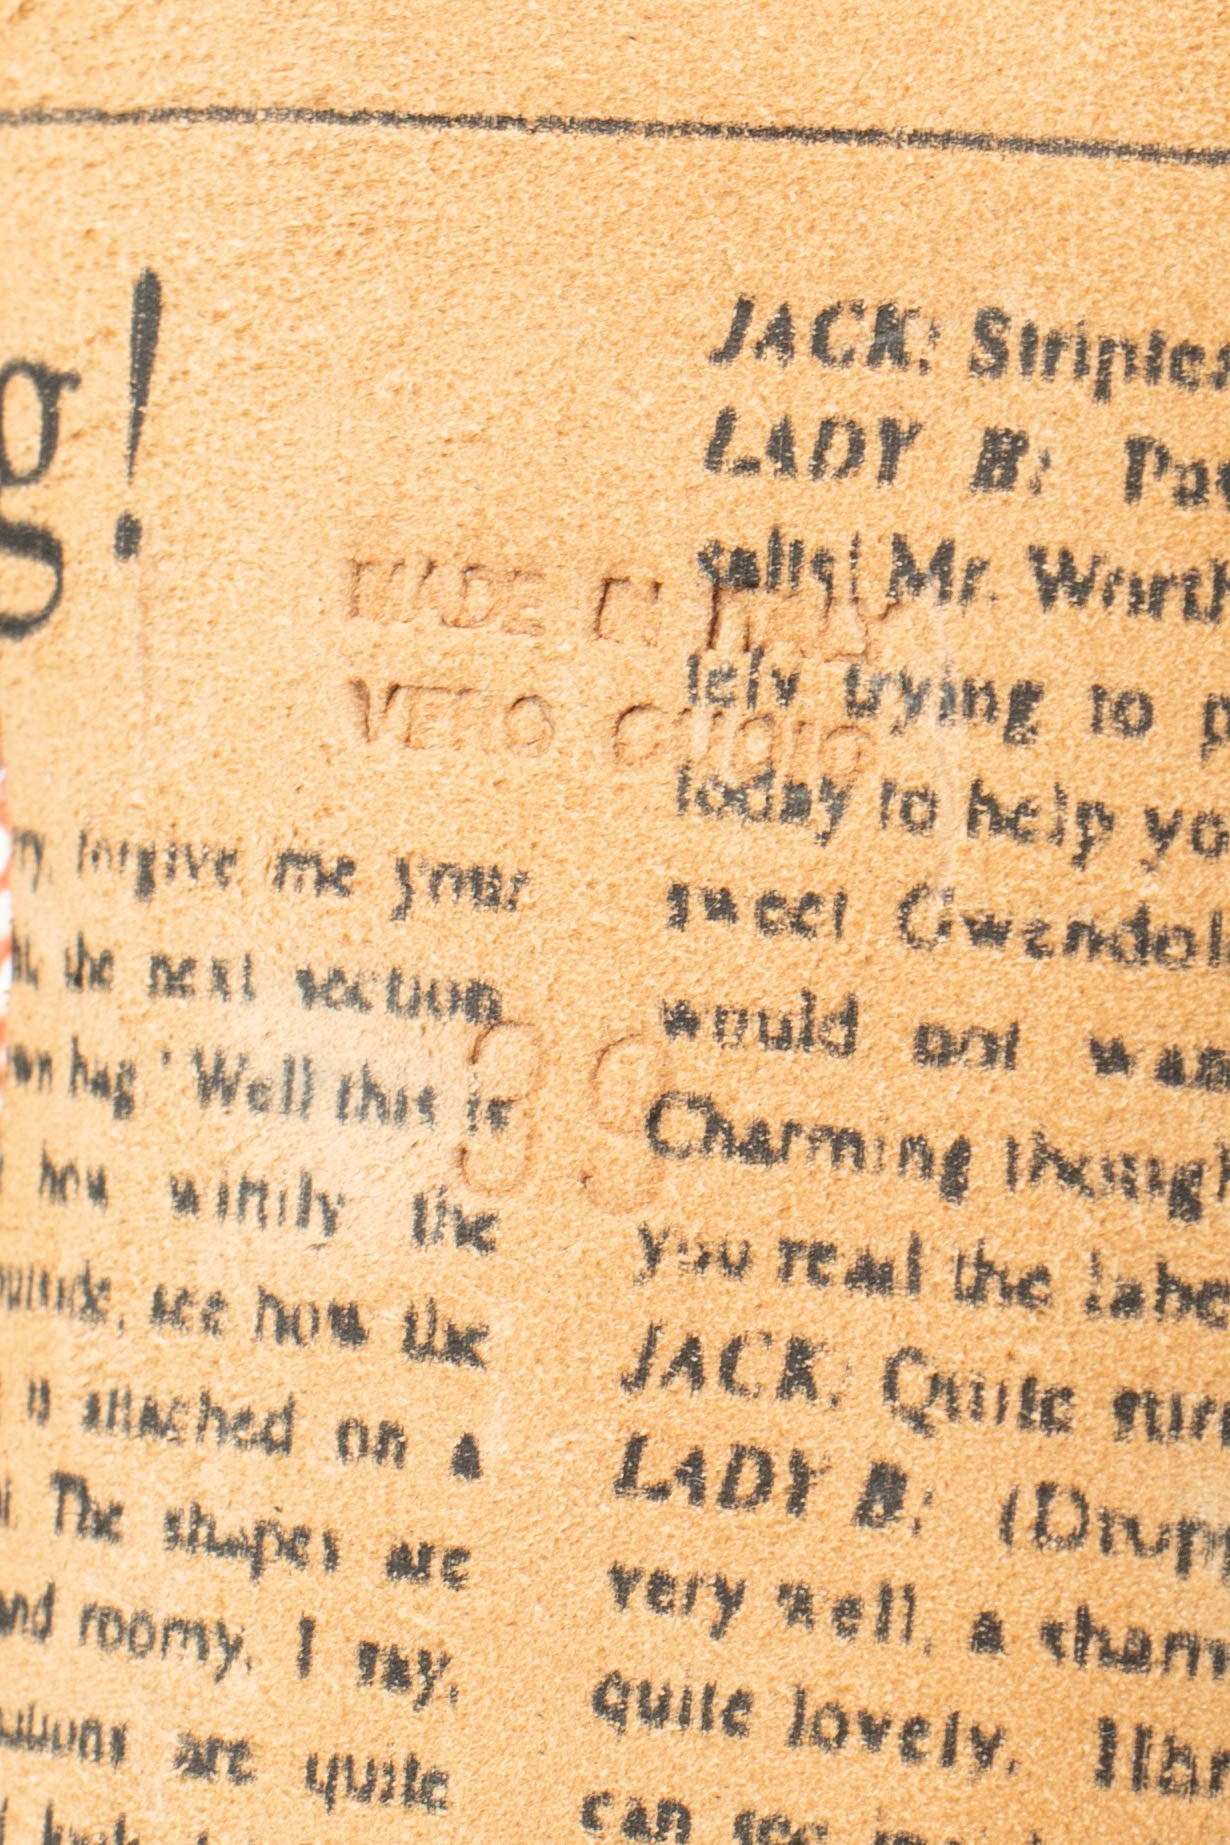 g!
MADE IN ITALY
VERO CUOIO
39
forgive me your
the next section
bag.' Well this is
how wittily the
outside, see how the
is attached on a
The shapes are
and roomy. I say,
are quite
JACK: Stripes
LADY B:
salts! Mr. Worth
lely trying to p
today to help yo
sweet Gwendol
would not wan
Charming though
you read the labe
JACK: Quite sure
LADY B: (Drop
very well, a cham
quite lovely.
can see